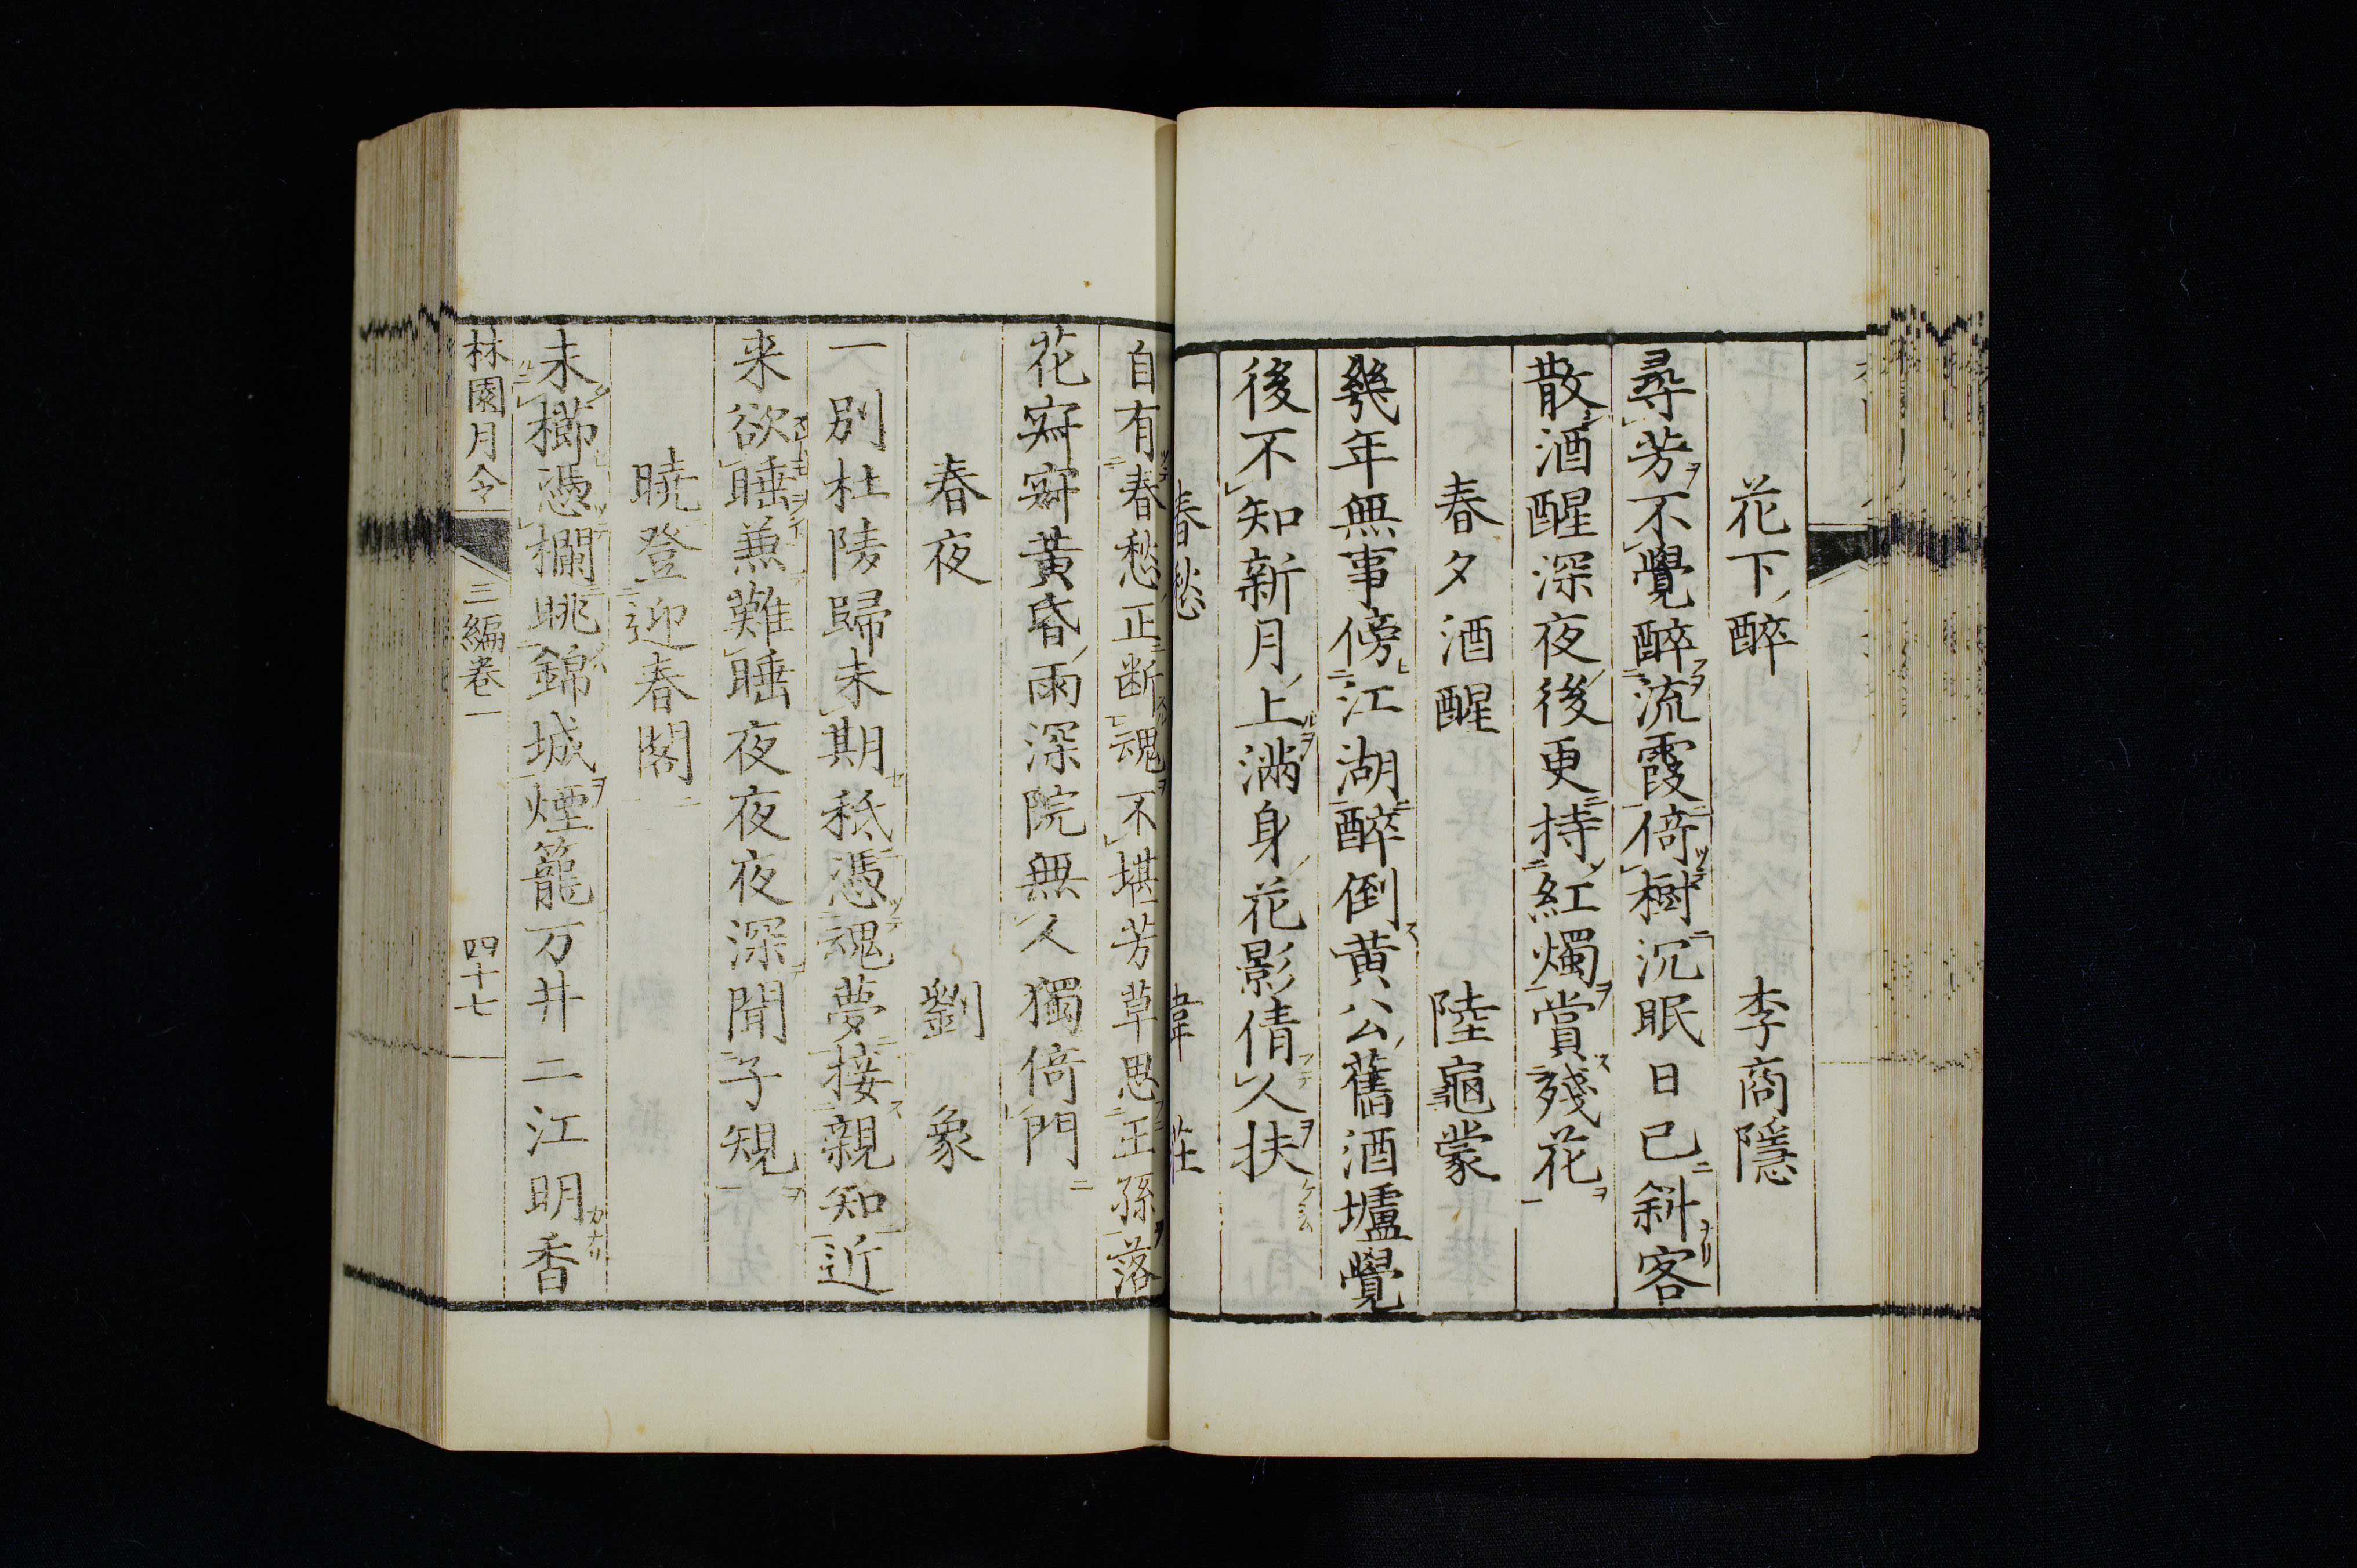 花下醉 李商隱
尋芳不覺醉流霞倚樹沉眠日已斜客
散酒醒深夜後更持紅燭賞殘花
春夕酒醒 陸龜蒙
幾年無事傍江湖醉倒黄公舊酒壚覺
後不知新月上滿身花影倩人扶
春愁 韋莊
自有春愁正断魂不堪芳草思王孫落
花寂寂黃昏雨深院無人獨倚門
春夜 劉象
一別杜陵歸未期秖憑魂夢接親知近
来欲睡兼難睡夜夜夜深聞子規
暁登迎春閣
未櫛憑欄眺錦城煙籠万井二江明香
林園月令 三編卷一 四十七